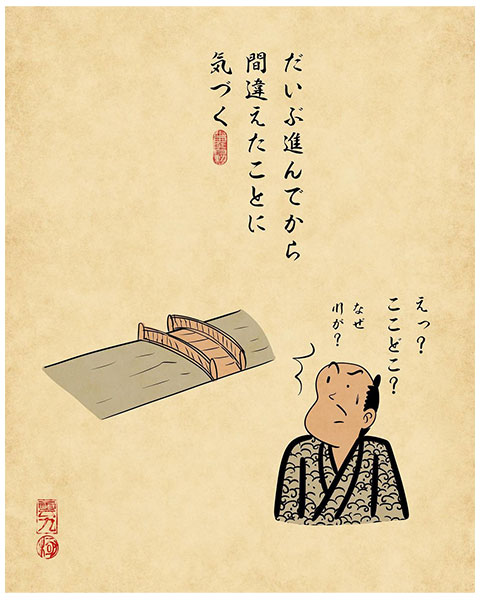 だいぶ進んでから
間違えたことに
気づく
えっ？
ここどこ？
なぜ
川が？